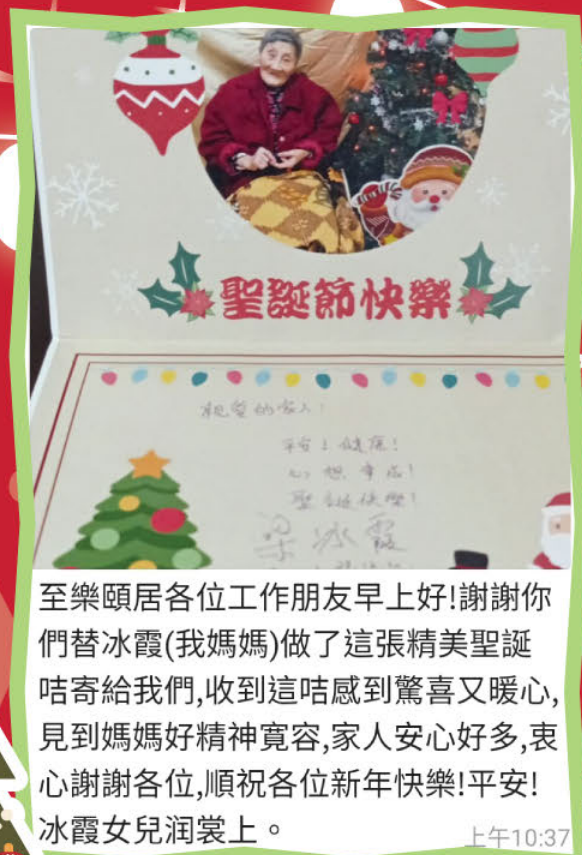 聖誕節快樂
親愛的家人:
平安!健康!
心想事成!
聖誕快樂!
梁冰霞
至樂頤居各位工作朋友早上好!謝謝你
們替冰霞(我媽媽)做了這張精美聖誕
咭寄給我們,收到這咭感到驚喜又暖心,
見到媽媽好精神寬容,家人安心好多,衷
心謝謝各位,順祝各位新年快樂!平安!
冰霞女兒润裳上。
上午10:37